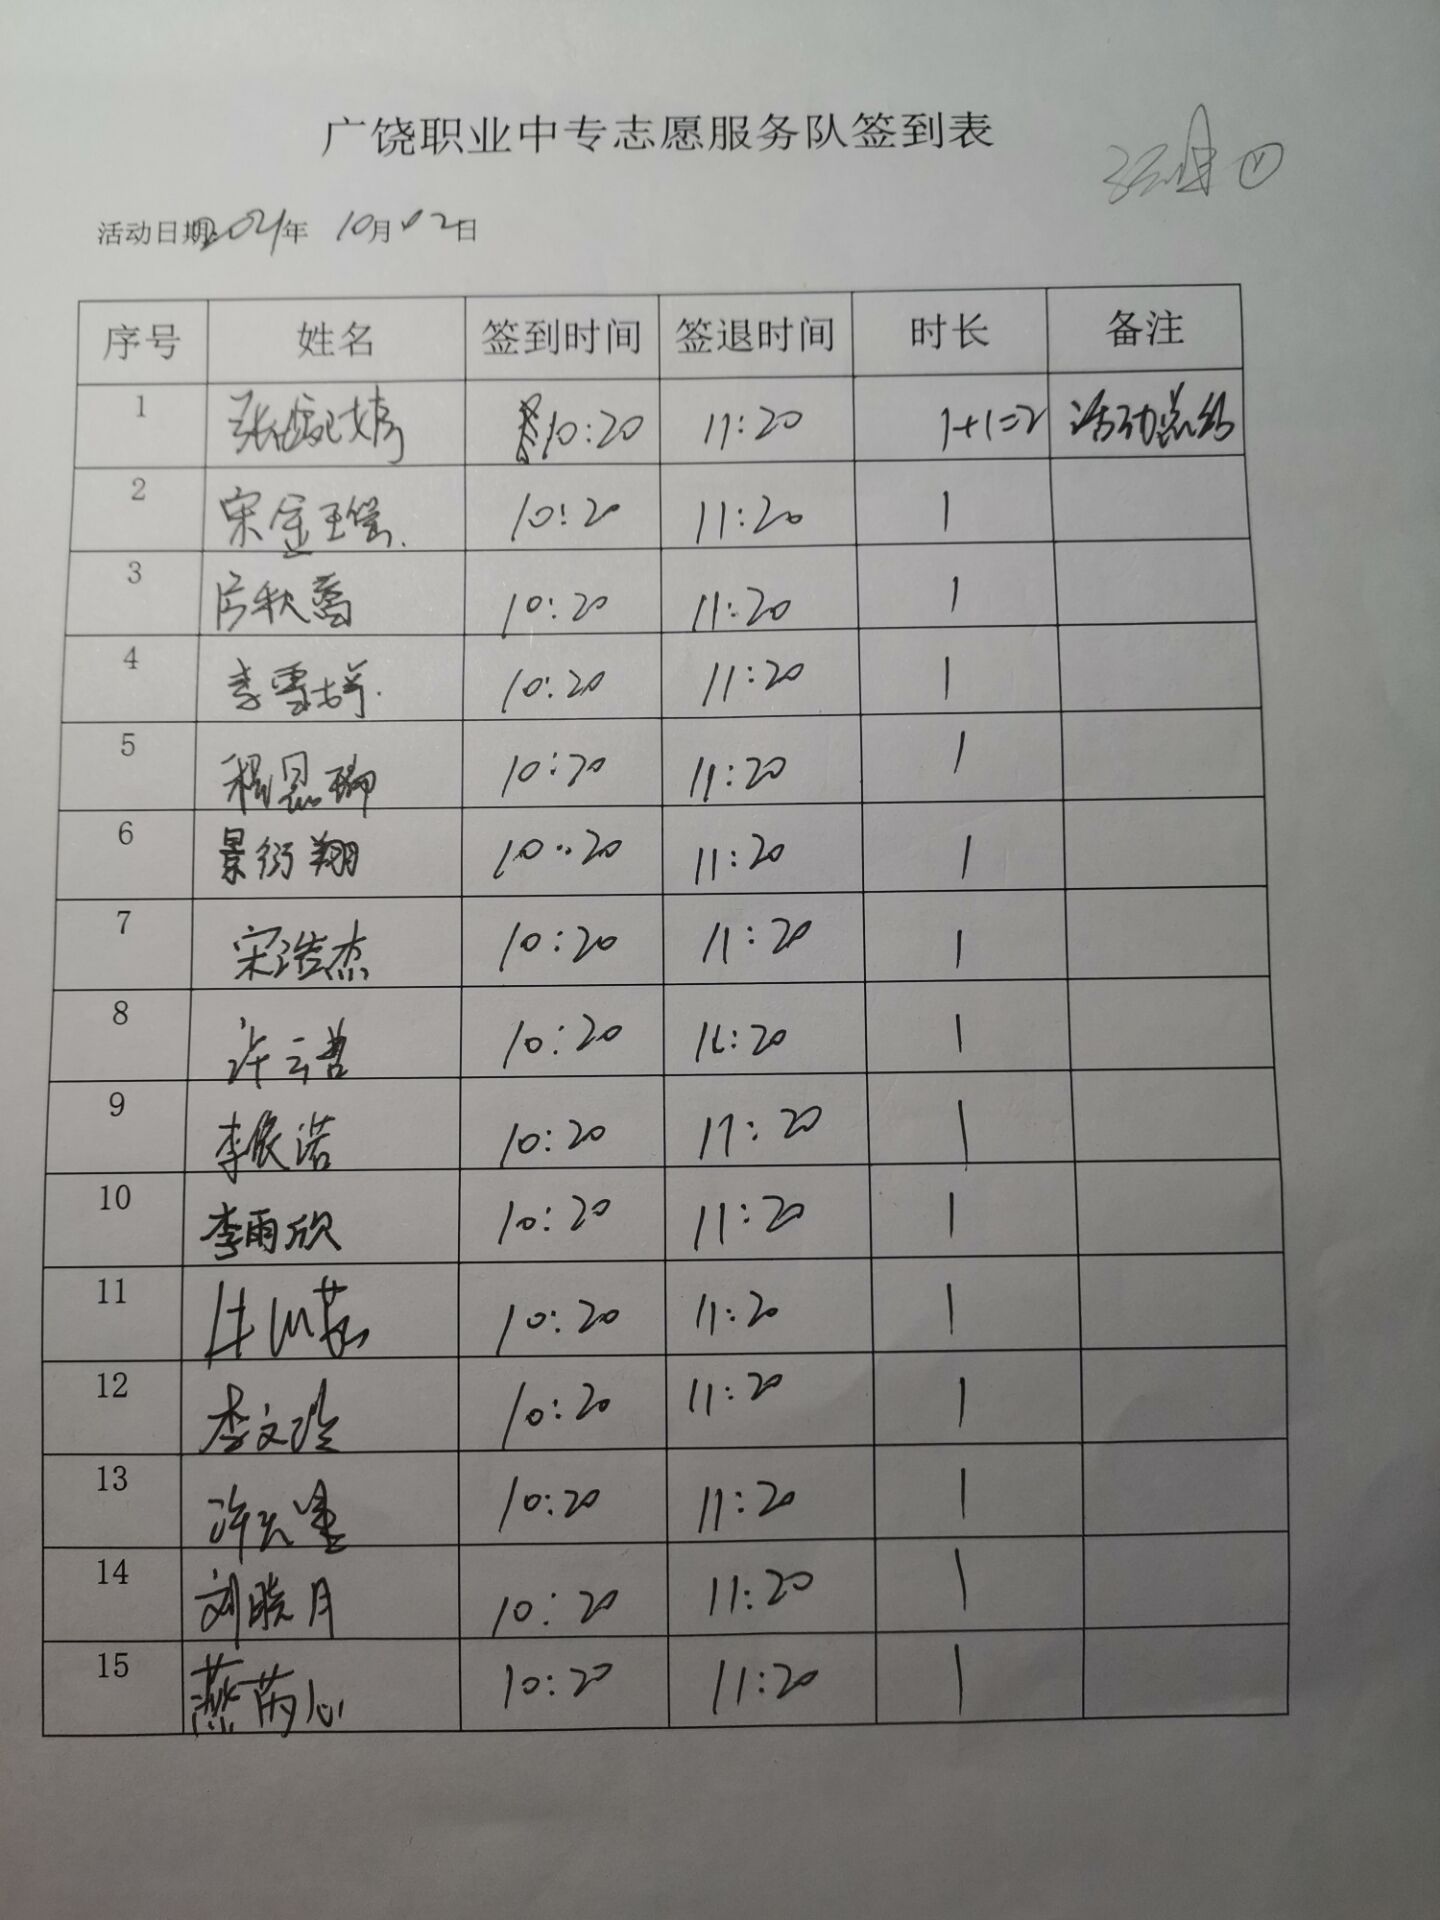 广饶职业中专志愿服务队签到表
活动日期:2021年 10月02日
序号 姓名 签到时间 签退时间 时长 备注
1 10:20 11:20 1+1=2 活动总结
2 宋金 10:20 11:20 1
3 秋 10:20 11:20 1
4 李雪 10:20 11:20 1
5 程昱 10:20 11:20 1
6 景衍翔 10:20 11:20 1
7 宋浩杰 10:20 11:20 1
8 许云 10:20 11:20 1
9 李依诺 10:20 11:20 1
10 李雨欣 10:20 11:20 1
11 10:20 11:20 1
12 李文 10:20 11:20 1
13 许 10:20 11:20 1
14 刘晓月 10:20 11:20 1
15 燕芮心 10:20 11:20 1